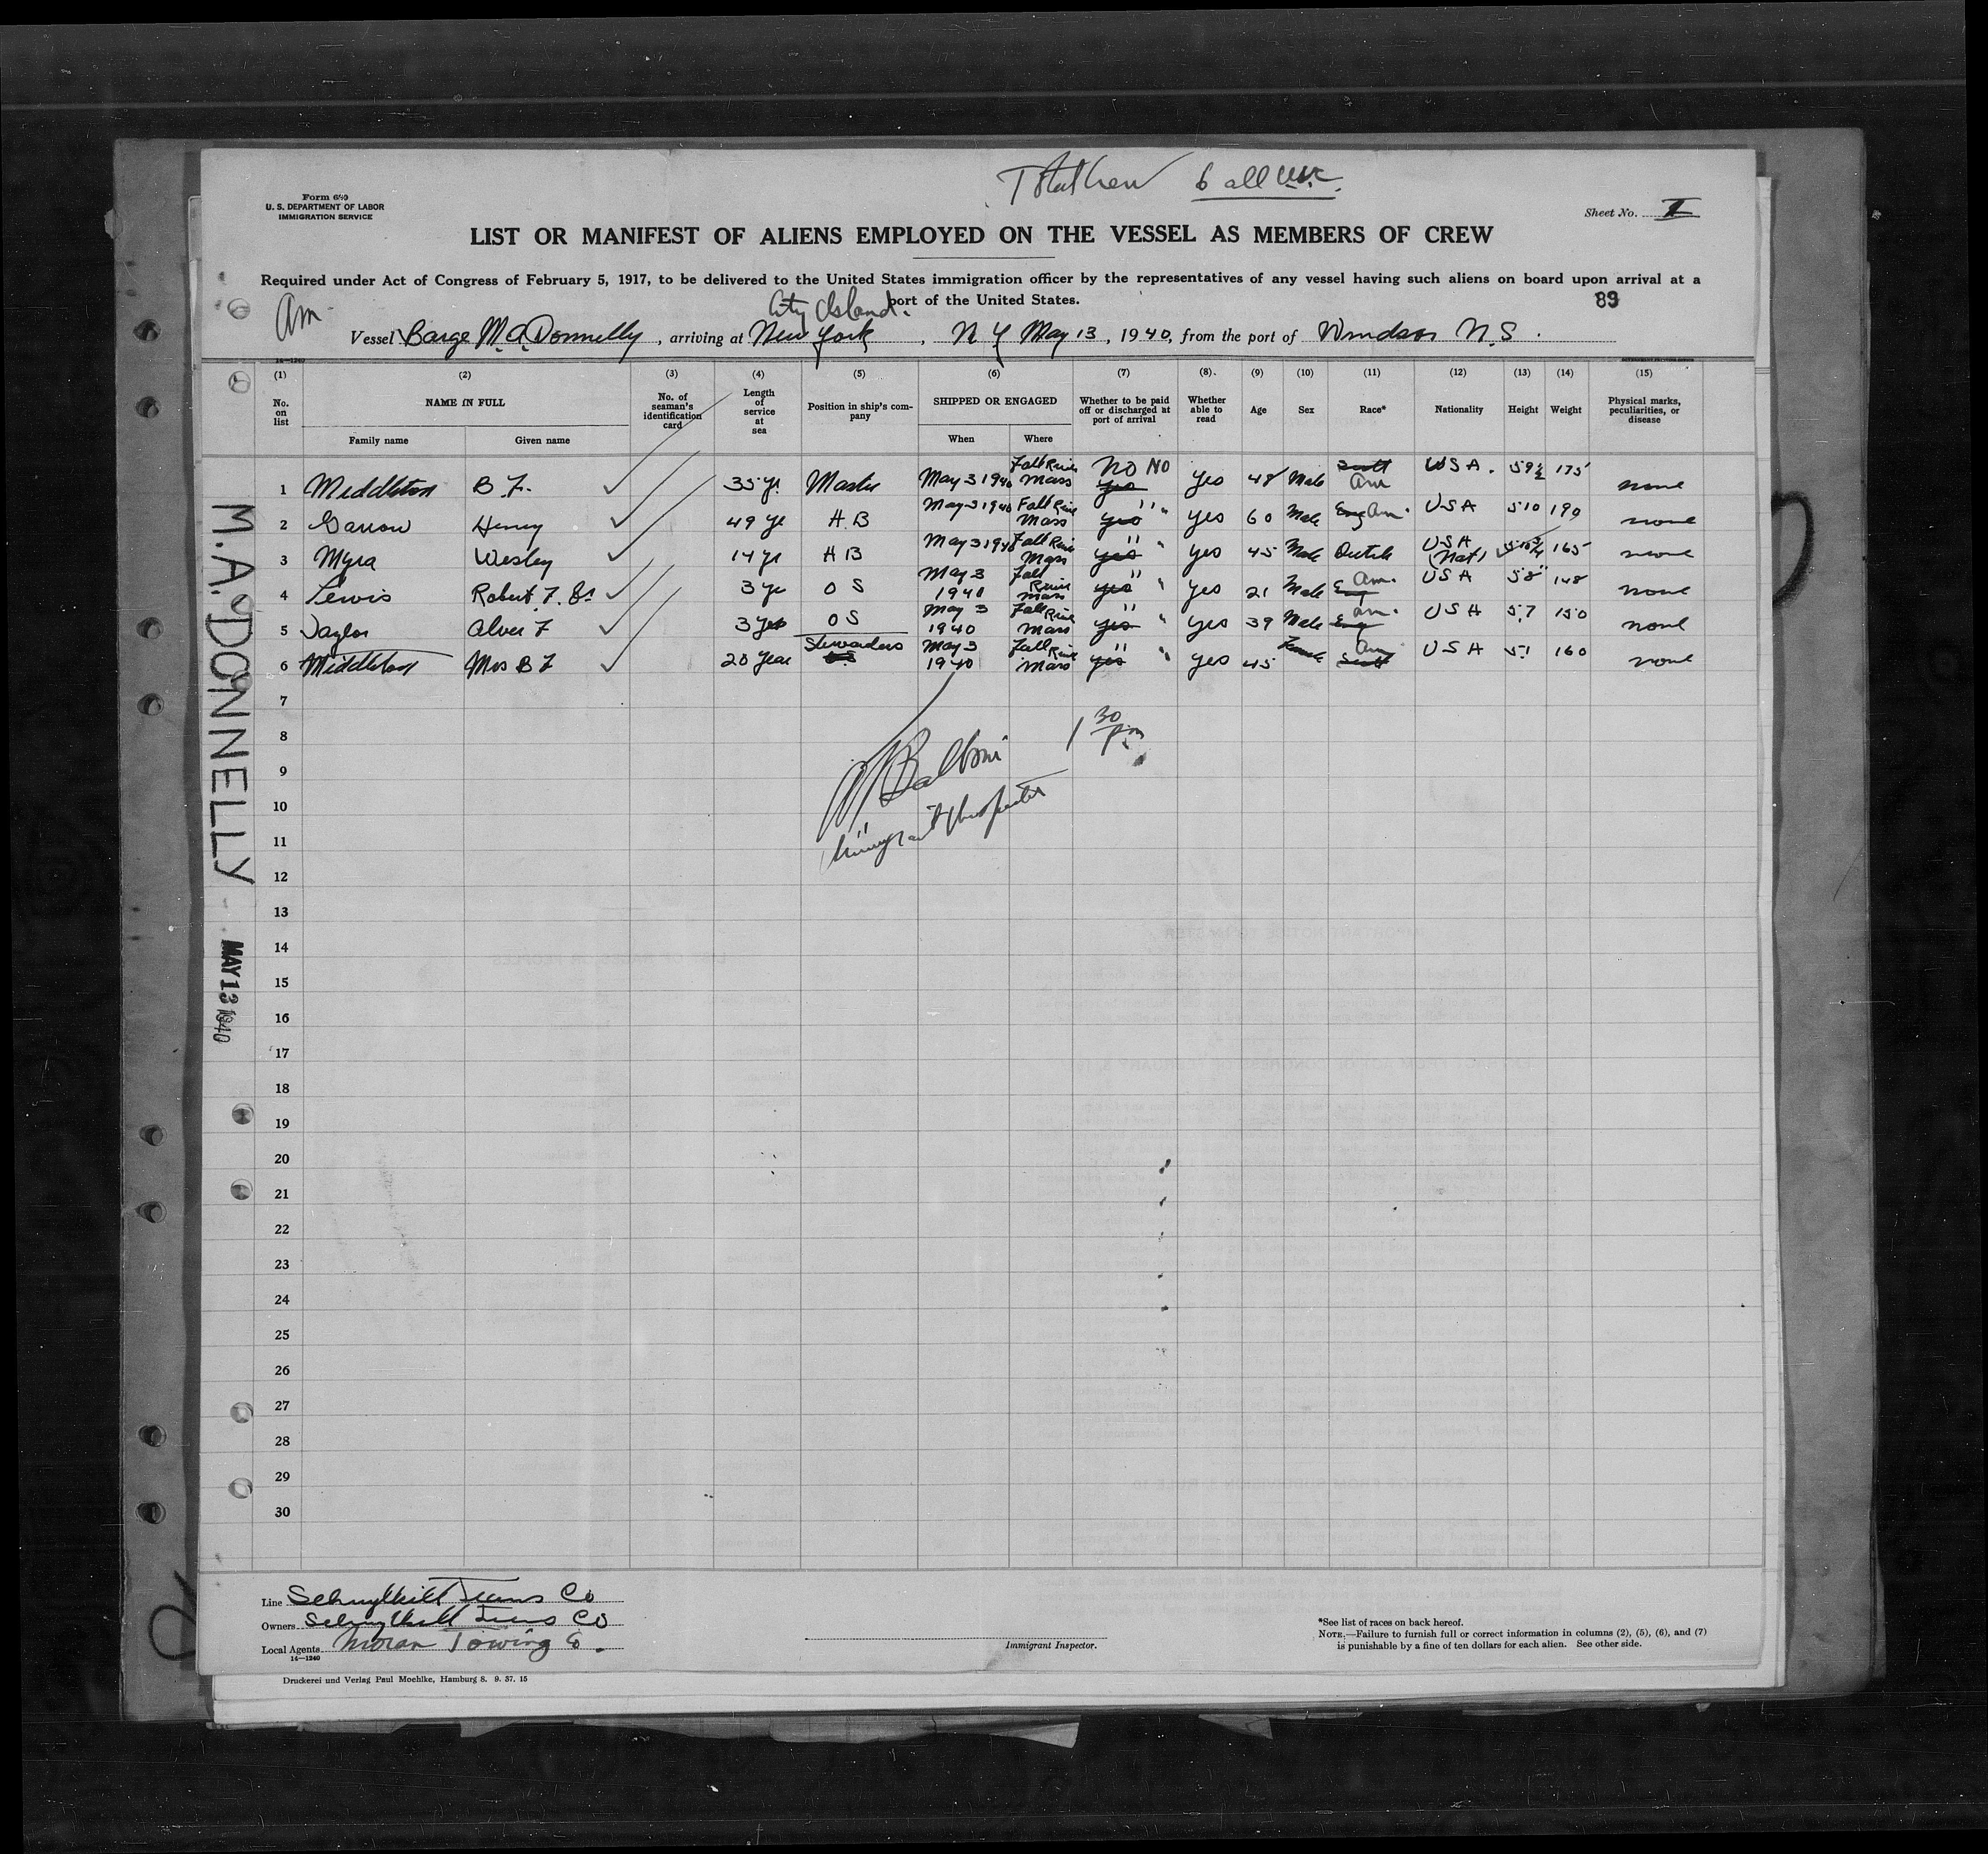 Total Crew 6 all USC
Form 680
U. S. DEPARTMENT OF LABOR
IMMIGRATION SERVICE
Sheet No. I
LIST OR MANIFEST OF ALIENS EMPLOYED ON THE VESSEL AS MEMBERS OF CREW
Required under Act of Congress of February 5, 1917, to be delivered to the United States immigration officer by the representatives of any vessel having such aliens on board upon arrival at a
port of the United States.
89
Am
City Island.
Vessel Barge M.A. Donnelly, arriving at New York, N Y May 13, 1940, from the port of Windsor N.S.
14—1240
(1) (2) (3) (4) (5) (6) (7) (8) (9) (10) (11) (12) (13) (14) (15)
No. on list NAME IN FULL No. of seaman's identification card Length of service at sea Position in ship's company SHIPPED OR ENGAGED Whether to be paid off or discharged at port of arrival Whether able to read Age Sex Race* Nationality Height Weight Physical marks, peculiarities, or disease
Family name Given name When Where
1 Middleton B F. 35 yr Master May 3 1940 Fall River Mass yes NO NO yes 48 Male Scott Am USA. 5 9½ 175 none
2 Garrow Henry 49 yr H.B May 3 1940 Fall River Mass yes " " yes 60 Male Eng Am. USA 5 10 190 none
3 Myra Wesley 14 yr H B May 3 1940 Fall River Mass yes " " yes 45 Male Dutch USA (Nat) 165 none
4 Lewis Robert F. 3 yr O S May 3 1940 Fall River Mass yes " " yes 21 Male Eng Am. USA 5 8" 148 none
5 Taylor Alver F 3 yrs O S May 3 1940 Fall River Mass yes " " yes 39 Male Eng Am. USA 5.7 150 none
6 Middleton Mrs B F 20 year Stewardess May 3 1940 Fall River Mass yes " " yes 45 Female Scott Am USA 5.1 160 none
7
8
9
10
11
12
13
14
15
16
17
18
19
20
21
22
23
24
25
26
27
28
29
30
1 30 pm
Balboni
Immigrant Inspector
M.A. DONNELLY
MAY 13 1940
Line Schuylkill Trans Co
Owners Schuylkill Trans Co
Local Agents Moran Towing Co.
14—1240
Immigrant Inspector.
*See list of races on back hereof.
NOTE.—Failure to furnish full or correct information in columns (2), (5), (6), and (7)
is punishable by a fine of ten dollars for each alien. See other side.
Druckerei und Verlag Paul Moehlke, Hamburg 8. 9. 37. 15